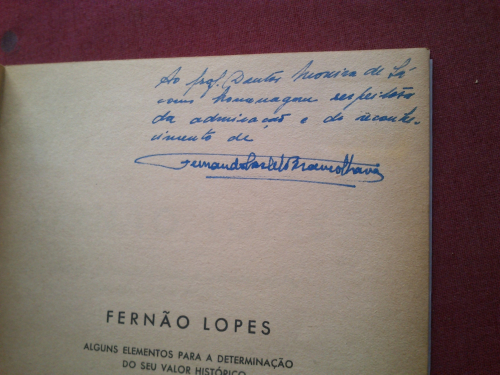 Ao Prof. Doutor Moreira de Sá
como homenagem respeitosa
da admiração e do reconhe-
cimento de
Fernando Castelo Branco Chaves
FERNÃO LOPES
ALGUNS ELEMENTOS PARA A DETERMINAÇÃO
DO SEU VALOR HISTÓRICO